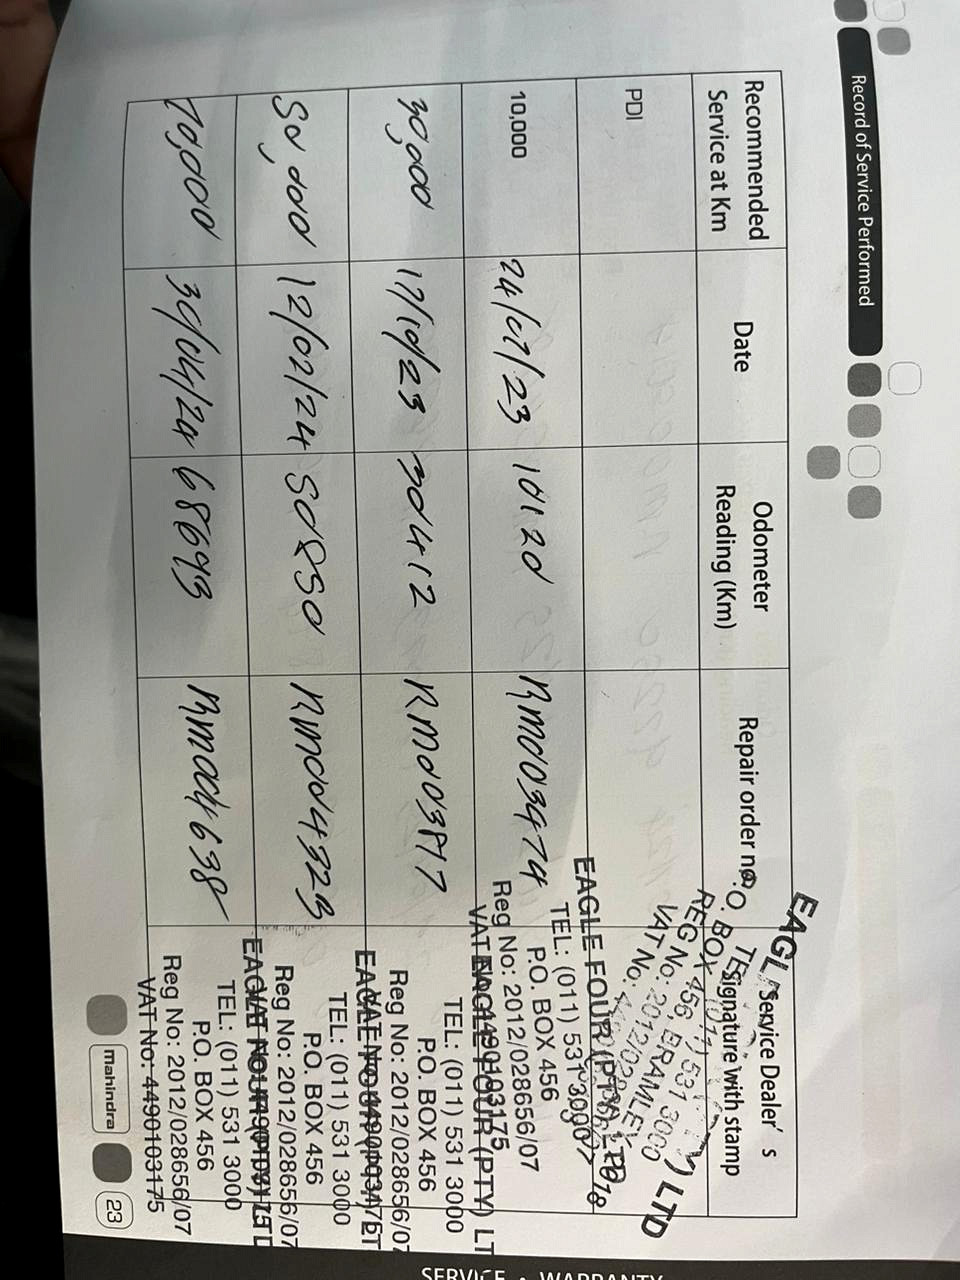 Record of Service Performed
Recommended Service at Km
Date
Odometer Reading (Km)
Repair order no.
Service Dealer's Signature with stamp
PDI
EAGLE
LTD
P.O. BOX 456, BRAMLEY
REG No: 2012/028656/07
VAT No:
10,000
24/07/23
10120
RM003474
EAGLE FOUR (PTY) LTD
TEL: (011) 531 3000
P.O. BOX 456
Reg No: 2012/028656/07
VAT No: 4490103175
30,000
17/10/23
30412
EAGLE FOUR (PTY) LT
TEL: (011) 531 3000
P.O. BOX 456
Reg No: 2012/028656/07
VAT No: 4490103175
50,000
12/02/24
50850
EAGLE FOUR (PTY) LT
TEL: (011) 531 3000
P.O. BOX 456
Reg No: 2012/028656/07
VAT No: 4490103175
70,000
30/04/24
68693
RM004638
EAGLE FOUR (PTY) LTD
TEL: (011) 531 3000
P.O. BOX 456
Reg No: 2012/028656/07
VAT No: 4490103175
mahindra
23
SERVICE • WARRANTY